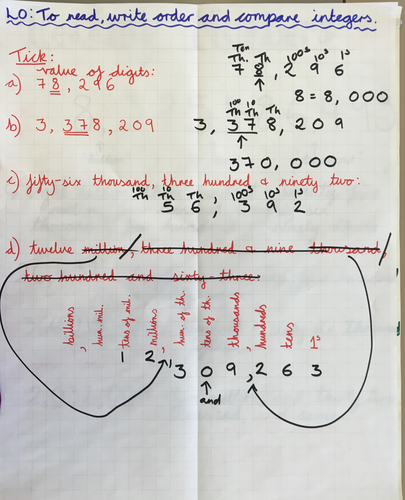 LO: To read, write order and compare integers.
Tick:
value of digits:
a) 78,296
Ten
Th. Th 100s 10s 1s
7 8, 2 9 6
8 = 8,000
b) 3, 378, 209
100 10
Th Th Th
3, 3 7 8, 2 0 9
370,000
c) fifty-six thousand, three hundred & ninety two:
100 10
Th Th Th 100s 10s 1s
5 6, 3 9 2
d) twelve million, three hundred & nine thousand,
two hundred and sixty-three:
billions, hun.mil. tens of mil. millions, hun. of th. tens of th. thousands, hundreds tens 1s
1 2, 3 0 9, 2 6 3
and